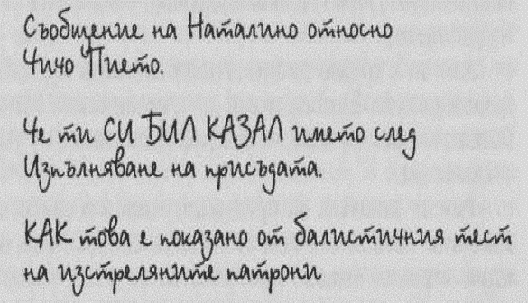 Съобщение на Наталино относно
Чичо Пието.
Че ти СИ БИЛ КАЗАЛ името след
Изпълняване на присъдата.
КАК това е показано от балистичния тест
на изстреляните патрони